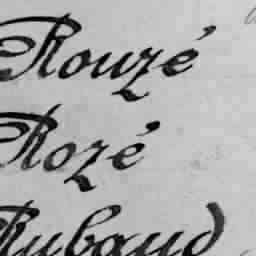 Rouzé
Rozé
Rubaud